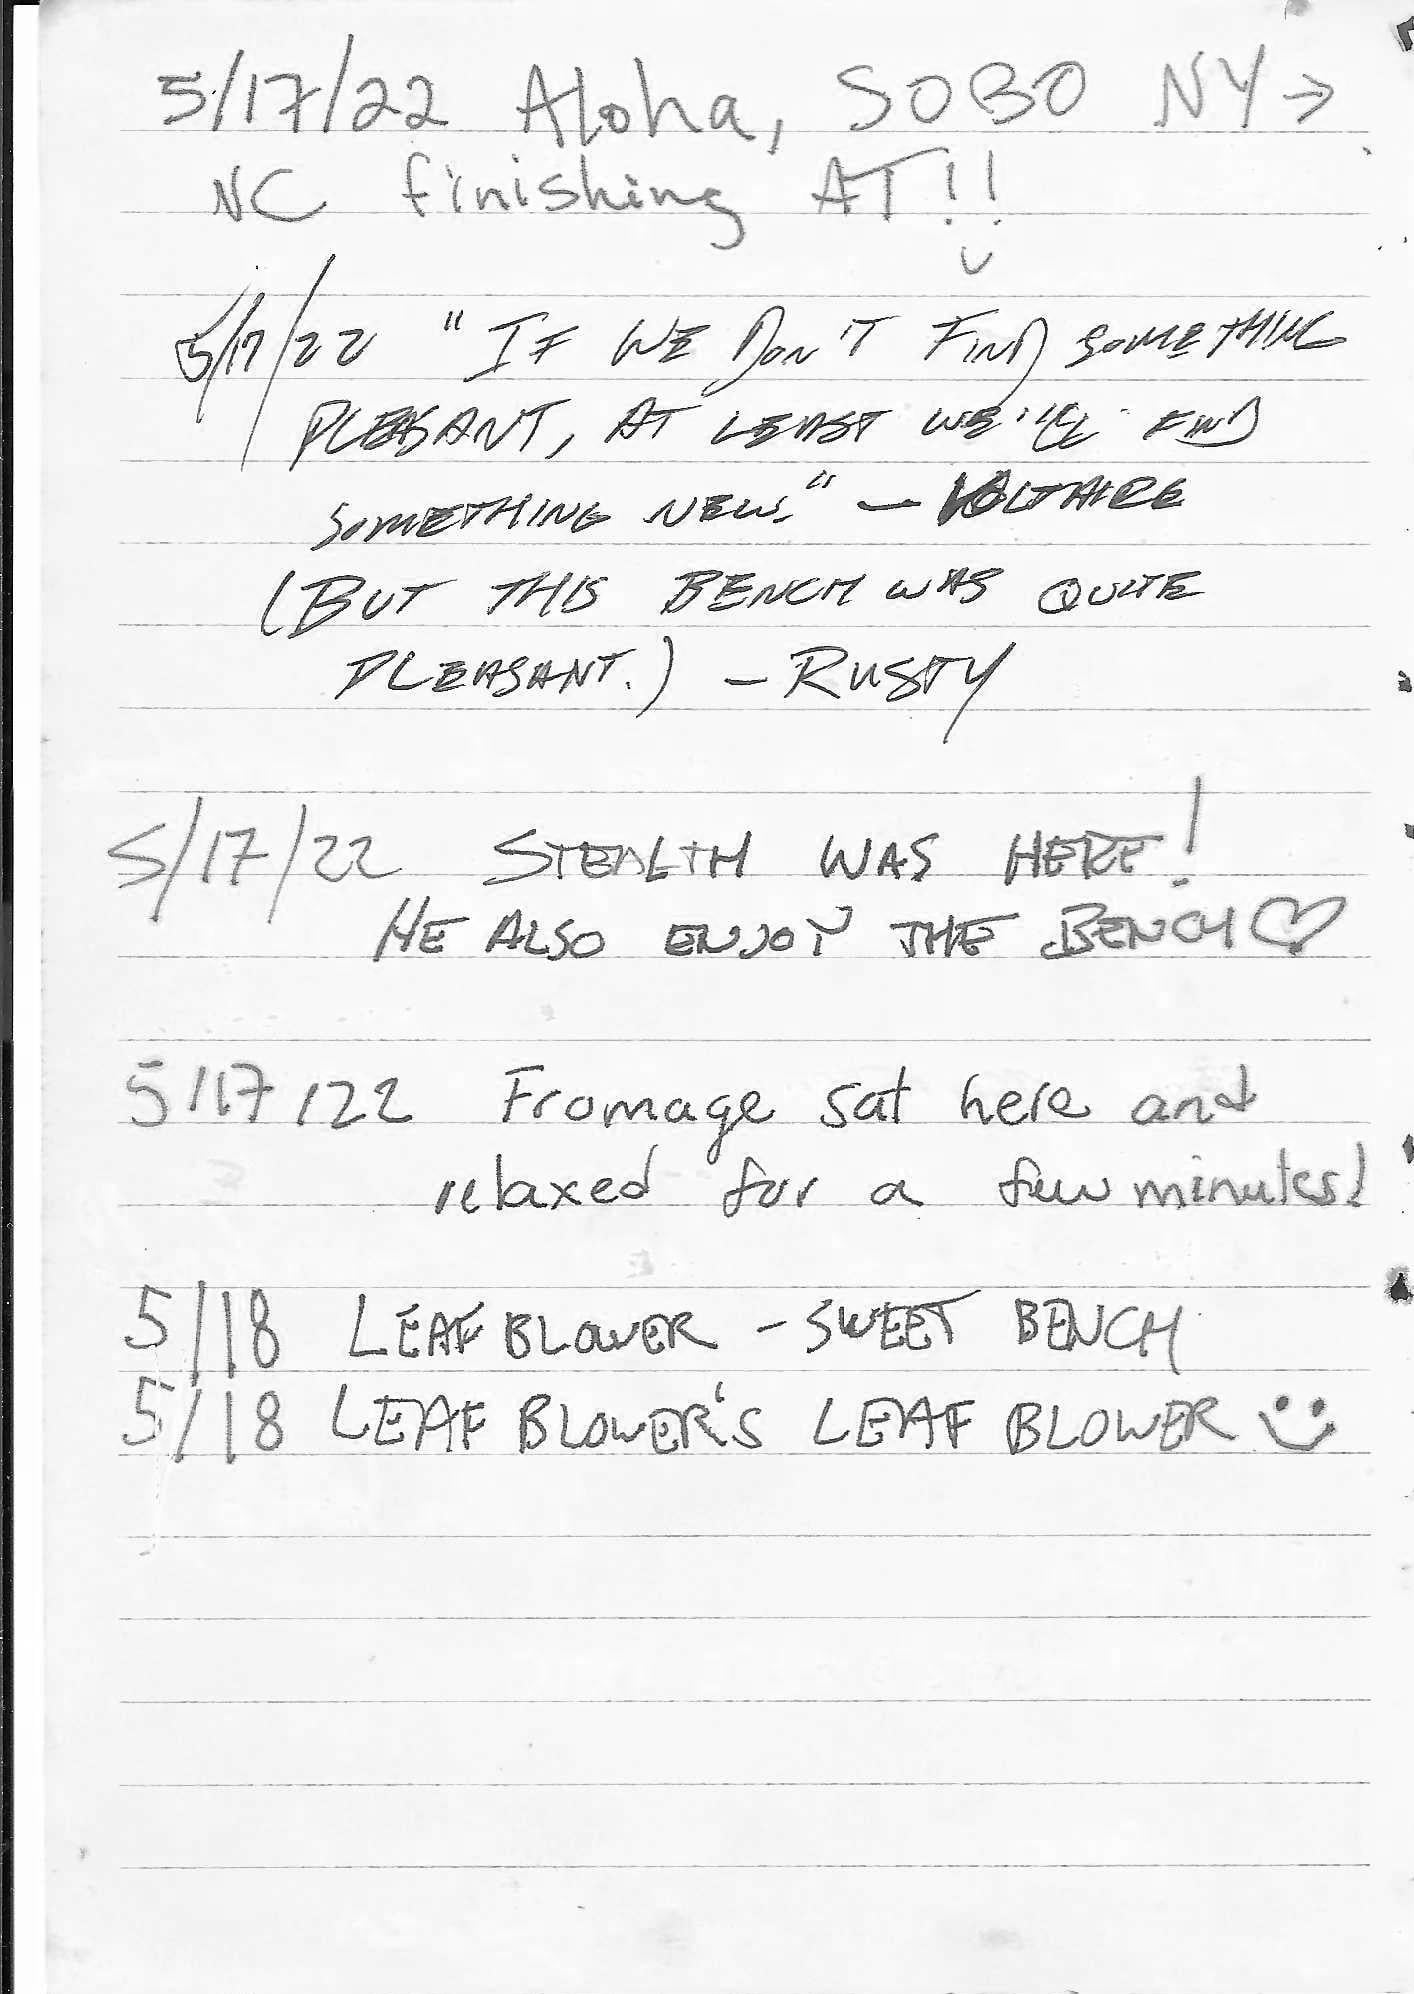 5/17/22 Aloha, SOBO NY →
NC finishing AT!!
5/17/22 "IF WE DON'T FIND SOMETHING
PLEASANT, AT LEAST WE'LL FIND
SOMETHING NEW." – VOLTAIRE
(BUT THIS BENCH WAS QUITE
PLEASANT.) – RUSTY
5/17/22 STEALTH WAS HERE!
HE ALSO ENJOY THE BENCH ♡
5/17/22 Fromage sat here and
relaxed for a few minutes!
5/18 LEAF BLOWER – SWEET BENCH
5/18 LEAF BLOWER'S LEAF BLOWER :)